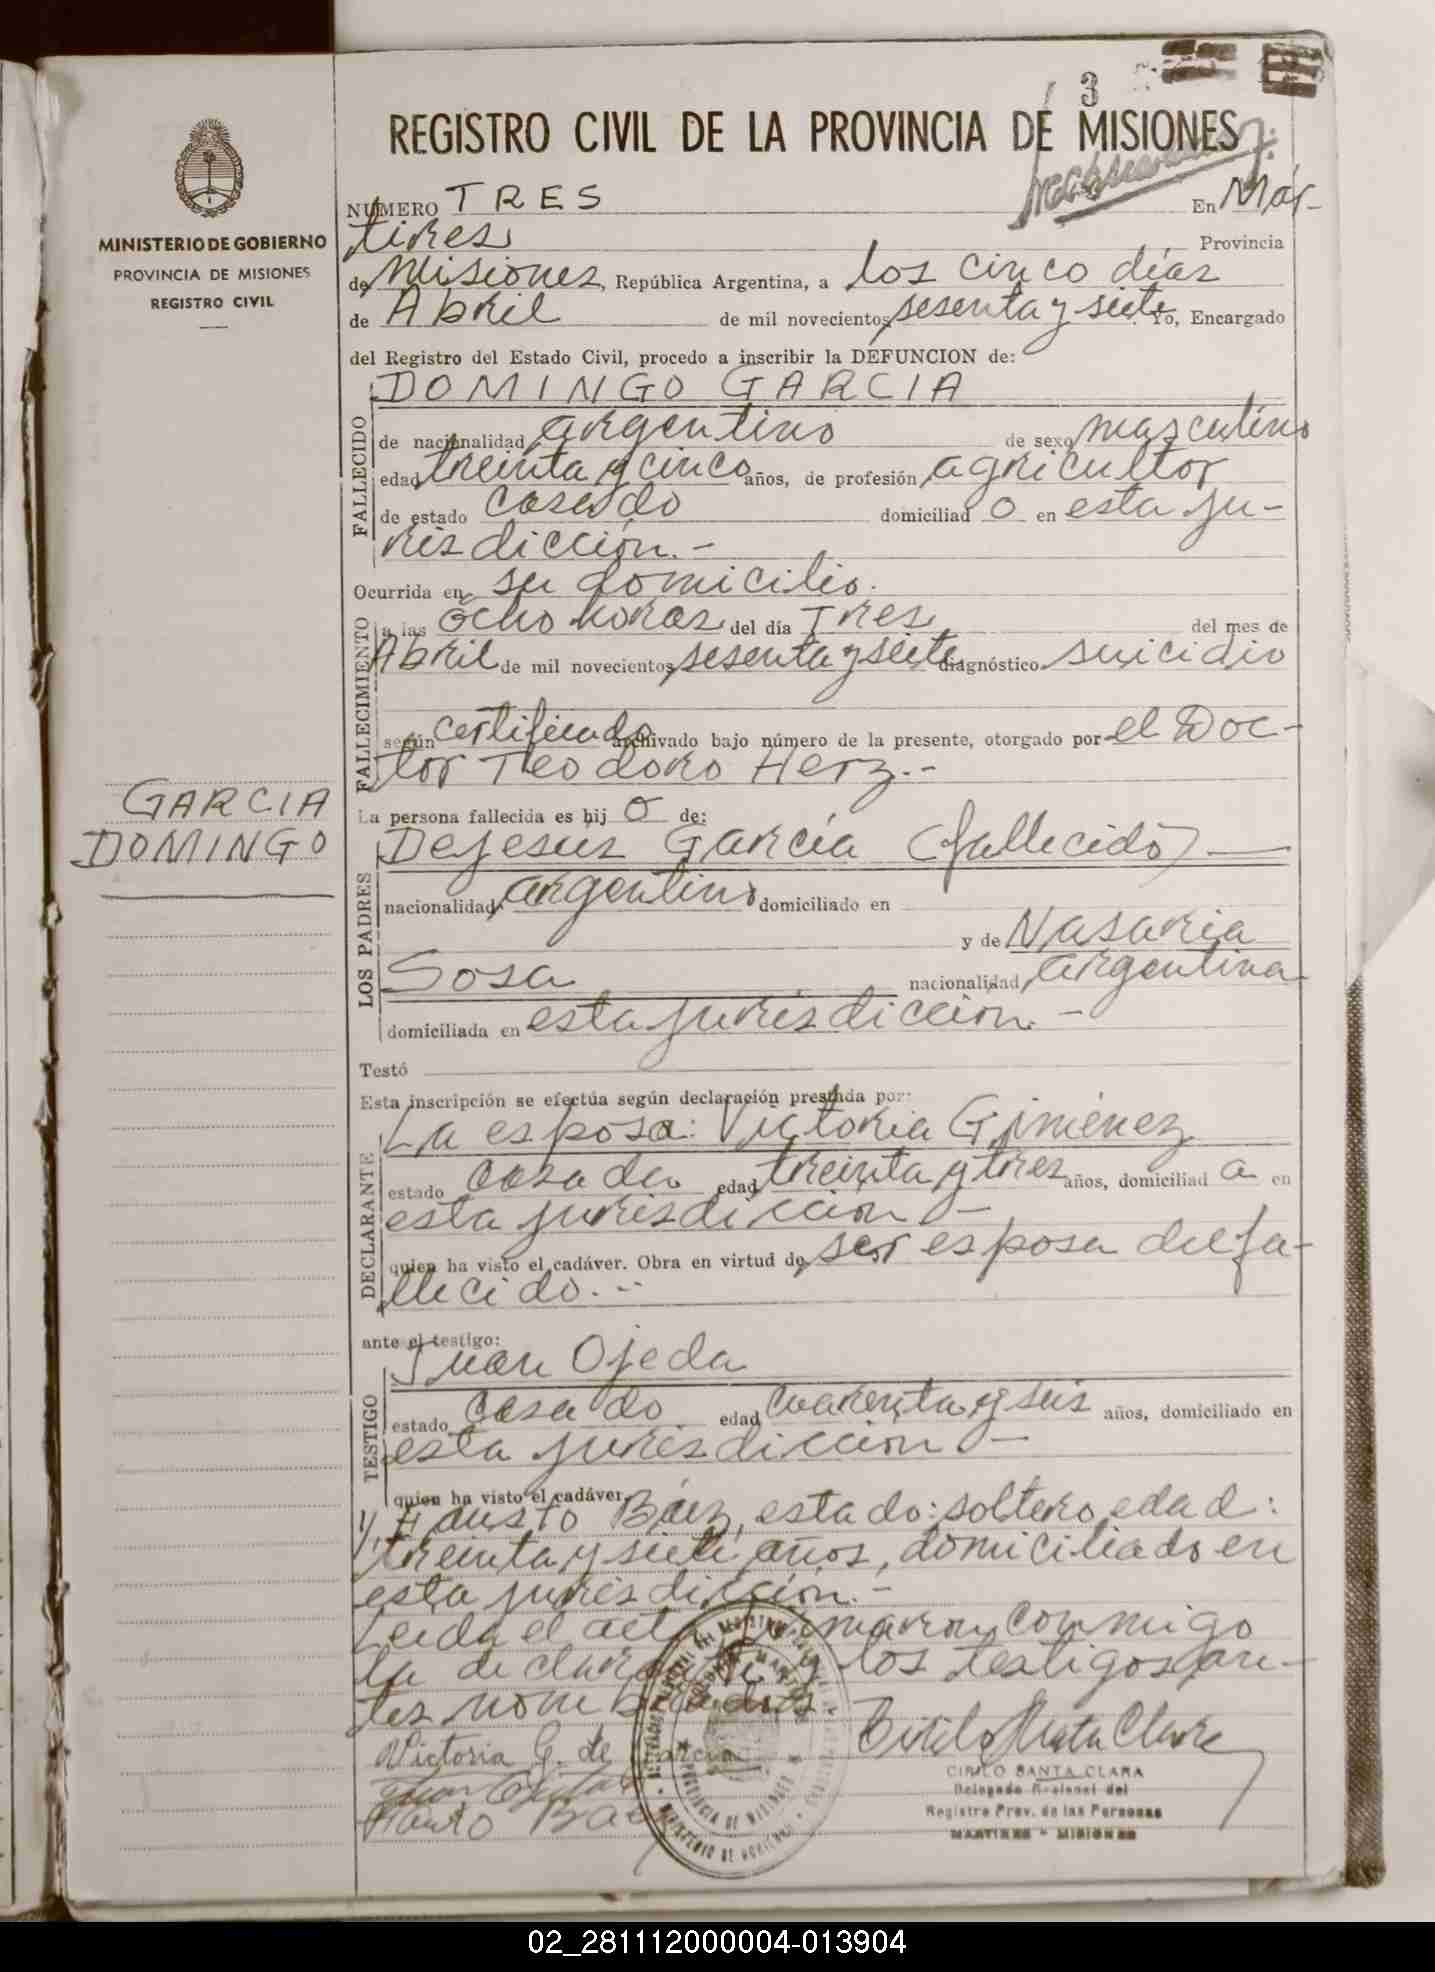 3
REGISTRO CIVIL DE LA PROVINCIA DE MISIONES
MINISTERIO DE GOBIERNO
PROVINCIA DE MISIONES
REGISTRO CIVIL
NUMERO TRES En Már-
tires Provincia
de Misiones, República Argentina, a los cinco días
de Abril de mil novecientos sesenta y siete. Yo, Encargado
del Registro del Estado Civil, procedo a inscribir la DEFUNCION de:
FALLECIDO
DOMINGO GARCIA
de nacionalidad argentino de sexo masculino
edad treinta y cinco años, de profesión agricultor
de estado casado domiciliad o en esta ju-
risdicción.-
Ocurrida en su domicilio.
FALLECIMIENTO
a las ocho horas del día Tres del mes de
Abril de mil novecientos sesenta y siete diagnóstico suicidio
según certificado archivado bajo número de la presente, otorgado por el Doc-
tor Teodoro Herz.-
GARCIA
DOMINGO
La persona fallecida es hij o de:
LOS PADRES
DeJesús García (fallecido)
nacionalidad argentino domiciliado en
y de Nasaria
Sosa nacionalidad argentina
domiciliada en esta jurisdicción.-
Testó
Esta inscripción se efectúa según declaración prestada por:
DECLARANTE
La esposa: Victoria Giménez
estado casada edad treinta y tres años, domiciliad a en
esta jurisdiccion -
quien ha visto el cadáver. Obra en virtud de ser esposa del fa-
llecido.-
ante el testigo:
TESTIGO
Juan Ojeda
estado casado edad cuarenta y seis años, domiciliado en
esta jurisdiccion -
quien ha visto el cadáver.
y, Fausto Báez, estado: soltero, edad:
treinta y siete años, domiciliado en
esta jurisdicción.-
Leida el acta firmaron conmigo
la declarante y los testigos an-
tes nombrados.
Victoria G. de Garcia
Fausto Baez
CIRILO SANTA CLARA
Delegado Regional del
Registro Prov. de las Personas
MARTIRES - MISIONES
PROVINCIA DE MISIONES
MINISTERIO DE GOBIERNO
02_281112000004-013904